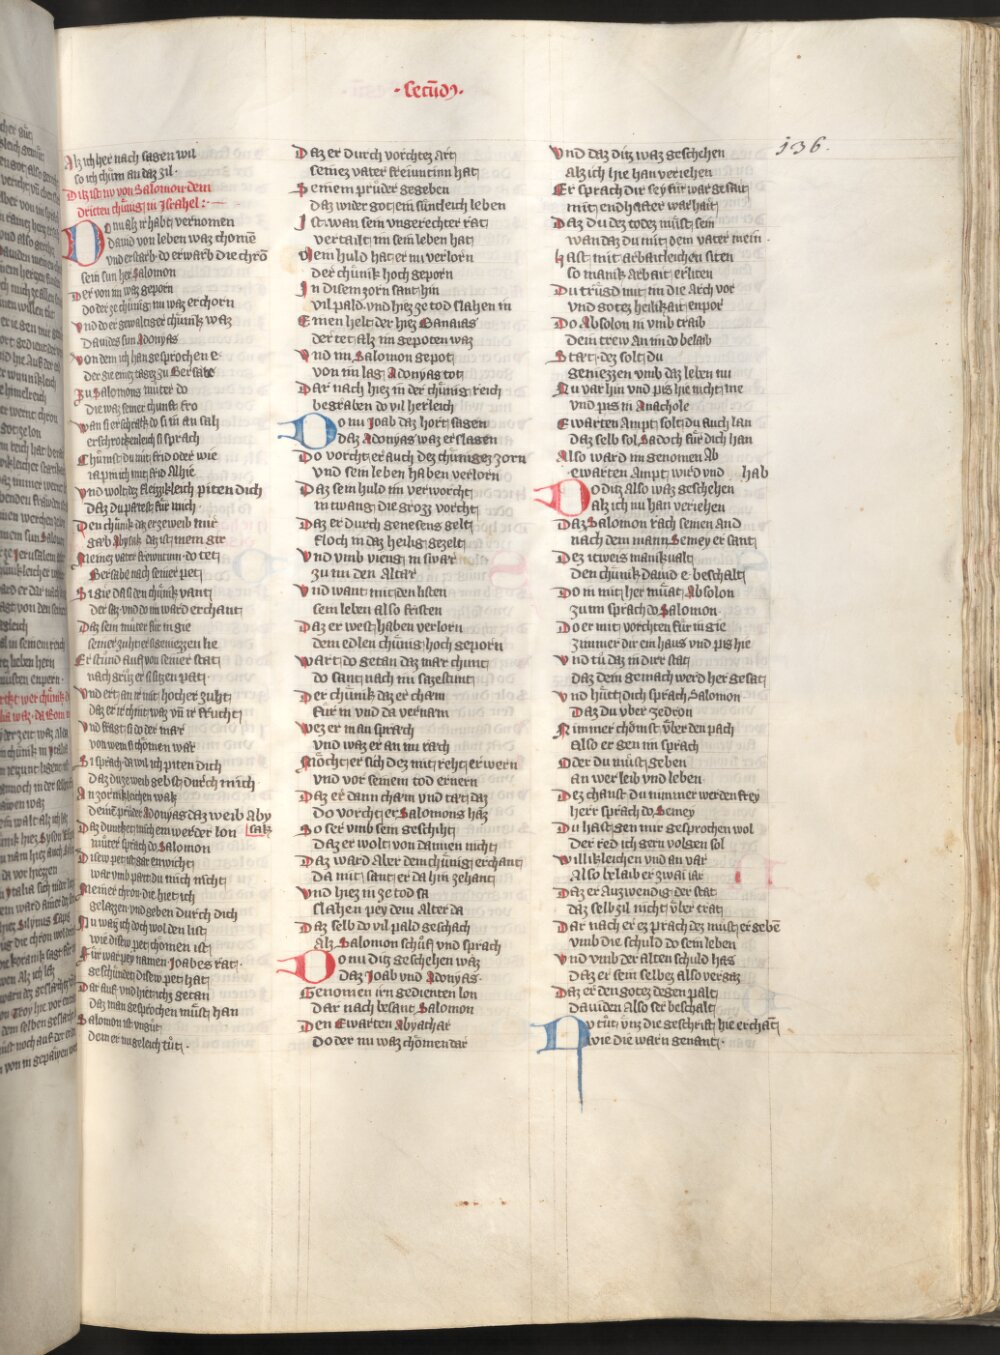 ·Secūdꝫ·
136.
Alz ich her nach sagen wil
so ich chüm an daz zil·
Ditz ist nv von Salomon dem
dritten chünig in Israhel:·
Do nu alz ir habt vernomen
Dauid von leben waz chomē
vnd erstarb· do erwarb die chrō
sein sun her Salomon
Der von im waz geporn
do der ze chünig nu waz erchorn
Vnd do er gewaltiger chünik waz
Dauides sun Adonyas
Von dem ich han gesprochen e·
der gie eines tagez zu Bersabe
Zu Salomons müter do
die waz seiner chunft fro
Wan si erschrakch do si in an sah
erschrokchenleich si sprach
Chümst du mit frid oder wie
ia pin ich mit frid Alhie
Vnd wolt dez fleizzikleich piten dich
daz du patest für mich
Den chünik daz er ze weib mir
gäb Abysak daz ist mein gir
Meinez vater freuntinn· do tet
Bersabe nach seiner pet
Si gie da si den chünik vant
der saz vnd do im ward erchant
Daz sein müter für in gie
seiner zuht er si geniezzen lie
Er stünd auf von seiner stat
nach grüz er si sitzen pat
Vnd ert an ir mit hocher zuht
daz er ir chint waz vn̄ ir frucht
Vnd fragt si do der mär
von wem si chomen wär
Si sprach da wil ich piten dich
daz du ze weib gebst durch mich
An zornikleichen walz
deinē prüder Adonyas daz weib Aby
Daz dunkchet mich ein werder lon sak
müter sprach do Salomon
Disew pet ist gar enwicht
war vmb part du mich nicht
Meiner chron· die hiet ich
gelazzen vnd geben durch dich
Nu waiz ich doch wol den list
wie disew pet chomen ist
Für war pey namen Joabes rat
geschünden disew pet hat
Dar auf vnd hiet ichz getan
daz man gesprochen müst han
Salomon ist vngüt
dem er nu geleich tüt·
Daz er durch vorchtez art
seinez vater freuntinn hat
Seinem prüder gegeben
daz wider got ein süntleich leben
Ist· wan sein vngerechter rat
vertailt im sein leben hat
Mein huld hat er nu verlorn
der chünik hoch geporn
In disem zorn sant hin
vil pald· vnd hiez ze tod slahen in
Einen helt der hiez Banaias
der tet alz im gepoten waz
Vnd im Salomon gepot
von im lag Adonyas tot
Dar nach hiez in der chünig reich
begraben do vil herleich
Do nu Joab daz hort sagen
daz Adonyas waz erslagen
Do vorcht er auch dez chünigez zorn
vnd sein leben haben verlorn
Daz sein huld im verworcht
in twang die grozz vorcht
Daz er durch genesens gelt
floch in daz heilig gezelt
Vnd vmb vieng in swar
zu im den Altar
Vnd want mit den listen
sein leben also fristen
Daz er west haben verlorn
dem edlen chünig hoch geporn
Wart do getan daz mär chunt
do sant nach im sa zestunt
Der chünik daz er chäm
für in vnd da vernäm
Wez er man sprach
vnd waz er an im räch
Möcht er sich dez mit reht erwern
vnd vor seinem tod ernern
Daz er dann chäm vnd tät daz
do vorcht er Salomons haz
So ser vmb sein geschiht
daz er wolt von dannen nicht
Daz ward aber dem chünig erchant
da mit sant er da hin zehant
Vnd hiez in ze tod sa
slahen pey dem Alter da
Daz selb do vil pald geschach
alz Salomon schüf vnd sprach
Do nu ditz geschehen waz
Daz Joab vnd Adonyas
Genomen irn gedienten lon
dar nach besant Salomon
Den Ewarten Abyathar
do der nu waz chomen dar
Vnd daz ditz waz geschehen
alz ich hie han veriehen
Er sprach dir sey für war gesait
mit endhafter warhait
Daz du dez todez müst sein
wan daz du mit dem vater mein·
Hast mit arbaitleichen siten
so manik arbait erliten
Du trügd mit im die Arch vor
vnd gotez heilikait enpor
Do Absolon in vmb traib
dein trew an im do belaib
Stät· dez solt du
geniezzen vnd daz leben nu
Nu var hin vnd pis hie nicht me
vnd pis in Anathote
Ewarten Ampt solt du auch lan
daz selb sol Sadoch für dich han
Also ward im genomen Ab
ewarten Ampt wird vnd hab
Do ditz also waz geschehen
alz ich nu han veriehen
Daz Salomon räch seinen And
nach dem mann Semey er sant
Dez itweis manikualt
den chünik dauid e· beschalt
Do in mit her müat Absolon
zu im sprach do Salomon
Do er mit vorchten für in gie
zimmer dir ein haus vnd pis hie
Vnd tü daz in dirr stat
daz dein gemach werd her gesat
Vnd hüt dich sprach Salomon
Daz du vber zedron
Nimmer chömst über den pach
also er gen im sprach
Oder du müst geben
an wer leib vnd leben
Dez chanst du nimmer werden frey
herr sprach do Semey
Du hast gen mir gesprochen wol
der red ich gern volgen sol
Willikleichen vnd an vär
Also belaib er zwai iar
Daz er auzwendig der stat
daz selb zil nicht über trat
Dar nach er ez prach dez must er gebē
vmb die schuld do sein leben
Vnd vmb der alten schuld has
Daz er sein selbez also vergaz
Daz er den gotez degen palt
dauiden also ser beschalt
Nv tüt vns die geschrift hie erchāt
wie die warn genant·